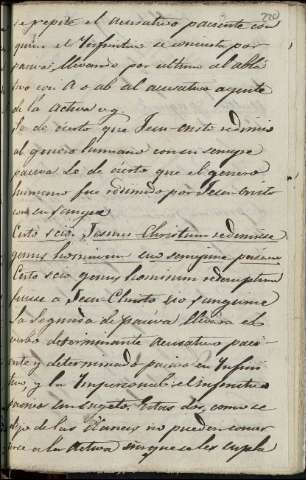 220
se repite el acusativo paciente con
quien el Infinitivo se concierta por
pasiva, llevando por ultimo al abla
tivo con A o ab al acusativo agente
de la activa v.g.
Se de cierto que Jesu-cristo redimio
al genero humano con su sangre
pasiva Se de cierto que el genero
humano fue redimido por Jesu-cristo
con su sangre
Certo scio, Jesum-Christum redemisse
genus hominum suo sanguine pasiva
Certo scio genus hominum redemptum
fuisse a Jesu-Christo suo sanguine
la segunda de pasiva llevara el
verbo determinante acusativo paci-
ente y determinado pasivo en Infini-
tivo, y la Impersonal el infinitivo
pasivo sin sugeto. Estas dos, como se
dijo de las llanas no pueden conver
tirse a la Activa sin que se les supla